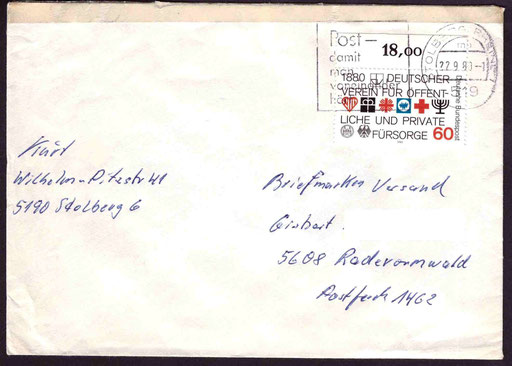 Post –
damit
man
voneinander
18,00
22.9.80
1880 DEUTSCHER
VEREIN FÜR ÖFFENT-
LICHE UND PRIVATE
FÜRSORGE 60
Deutsche Bundespost
Kürt
5190 Stolberg 6
Briefmarken Versand
5608 Radevormwald
Postfach 1462